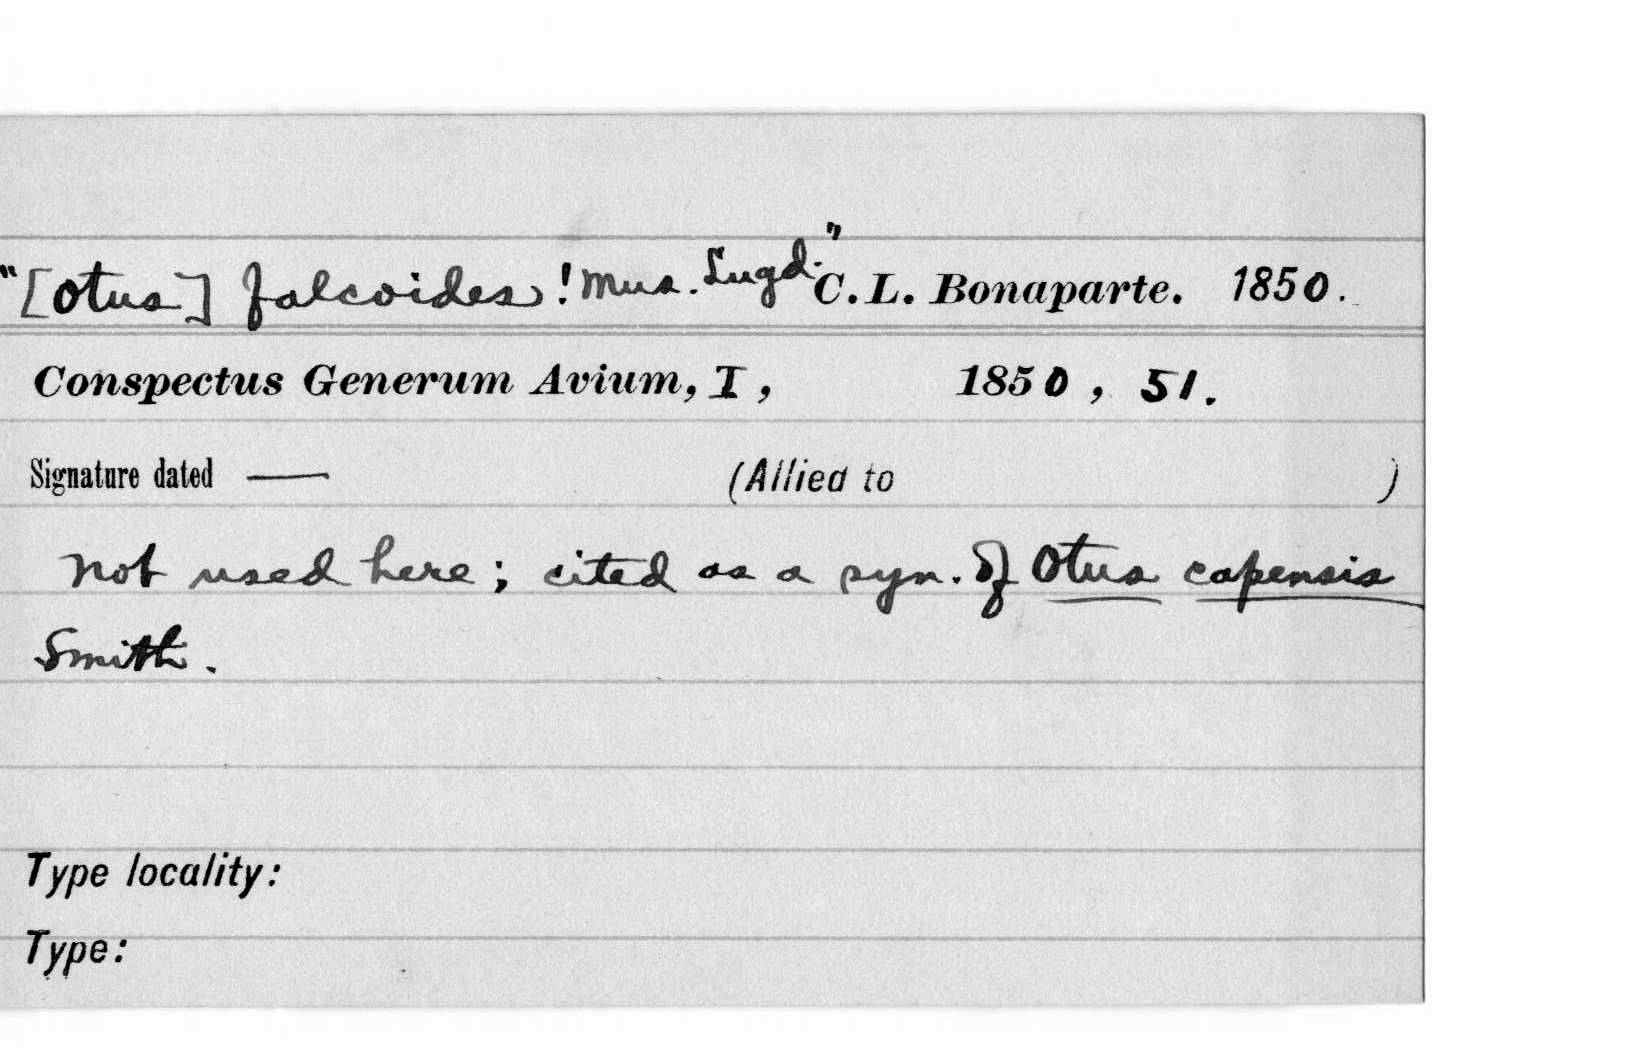 "[Otus] falcoides! Mus. Lugd." C. L. Bonaparte. 1850.
Conspectus Generum Avium, I, 1850, 51.
Signature dated — (Allied to )
Not used here; cited as a syn. of Otus capensis
Smith.
Type locality:
Type: